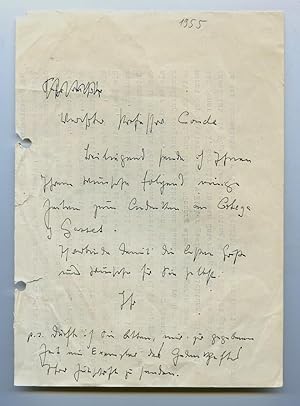 1955
Professor Conde
Beiliegend sende ich Ihnen
Ihrem Wunsche folgend einige
Zeilen zum Gedenken an Ortega
y Gasset.
damit die besten Grüße
und Wünsche für Sie selbst.
Ihr
p.s. Dürfte ich Sie bitten, mir zu gegebener
Zeit ein Exemplar des
Ihrer Zeitschrift zu senden.